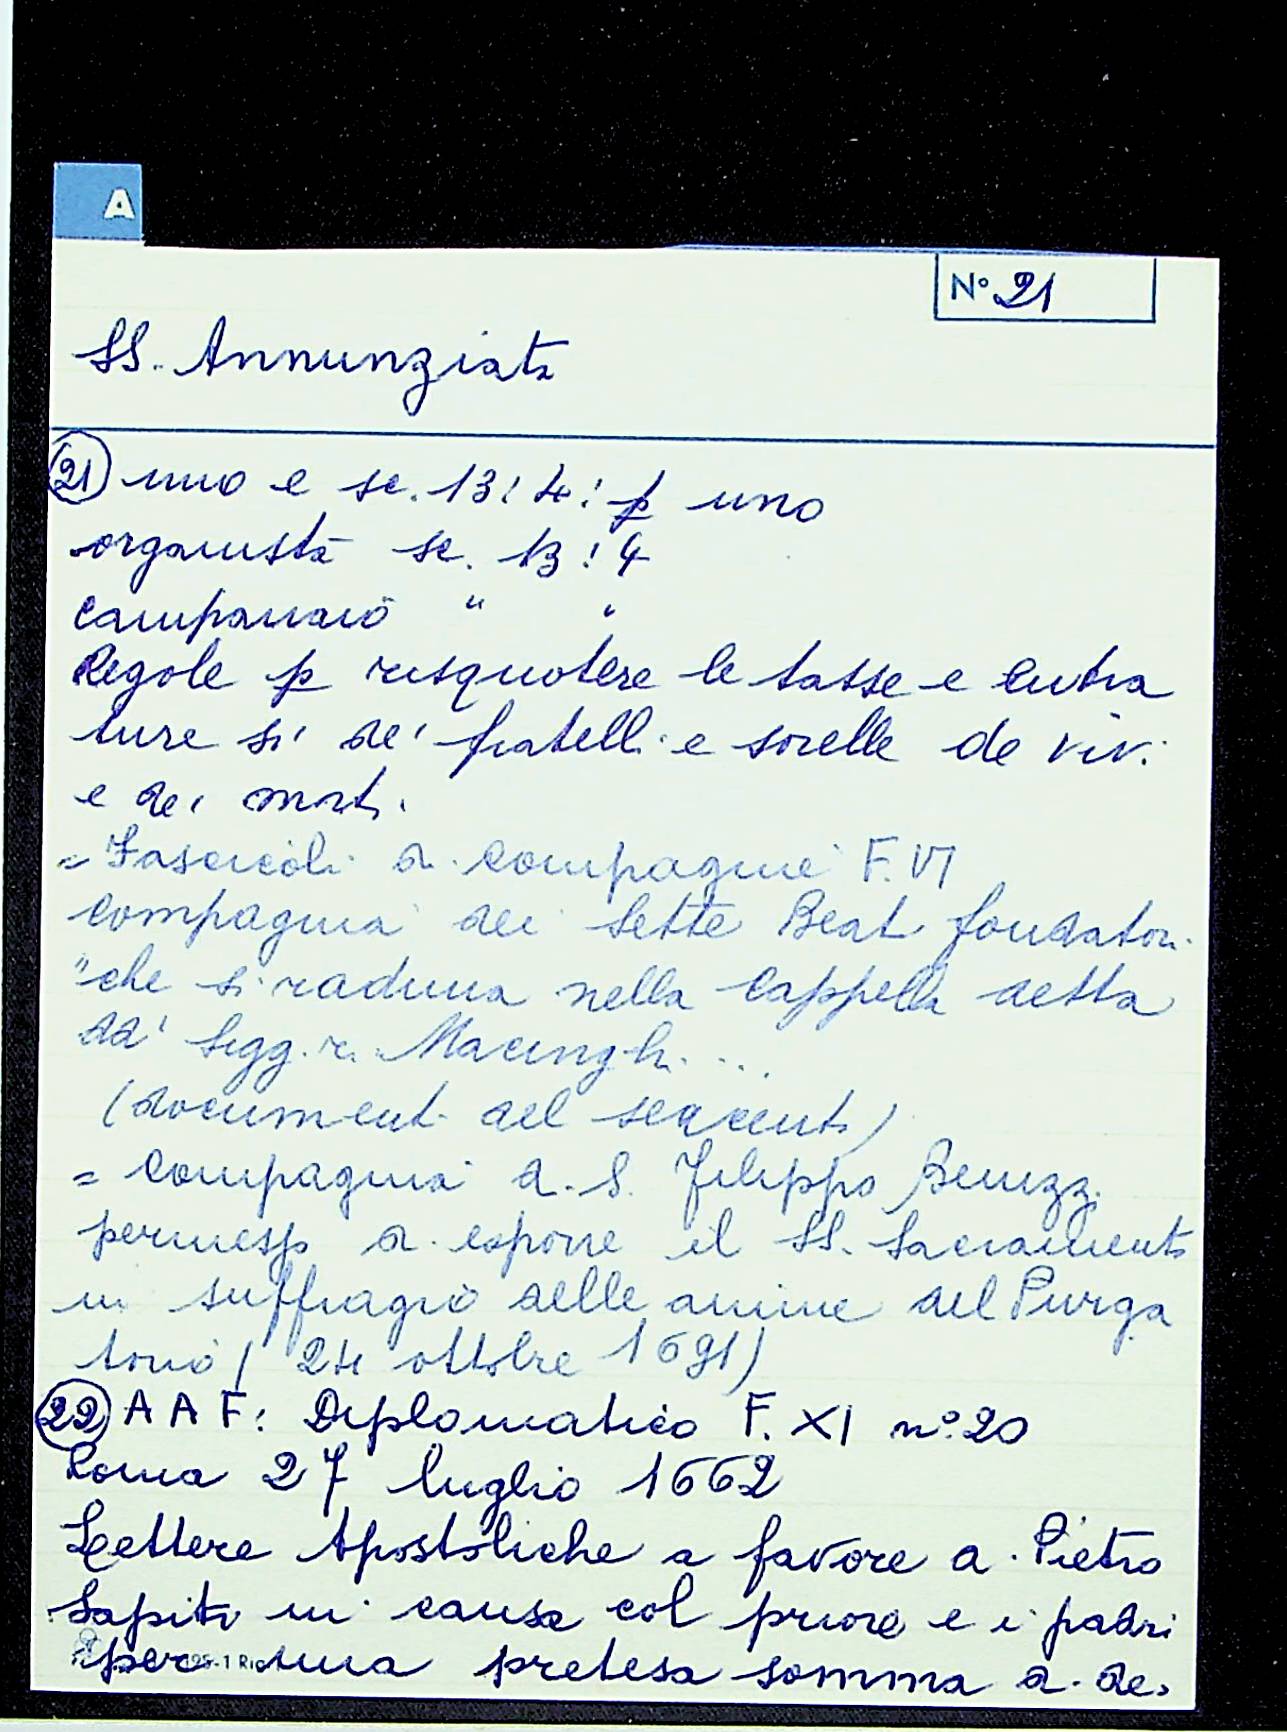 A
N° 21
SS. Annunziata
21 uno e sc. 13:4: p uno
organista sc. 13:4
campanaio " "
Regole p risquotere le tasse e entra
ture sì de' fratelli e sorelle de vivi
e dei morti.
= Fascicoli di compagnie F. VI
Compagnia dei Sette Beati fondatori
"che si raduna nella Cappella detta
da' Sigg.ri Macinghi ...
(documenti del seicento)
= Compagnia di S. Filippo Benizzi
permesso di esporre il SS. Sacramento
in suffragio delle anime del Purga
torio (24 ottobre 1691)
22 AAF: Diplomatico F. XI n° 20
Roma 27 luglio 1662
Lettere Apostoliche a favore di Pietro
Sapiti in causa col priore e i padri
per una pretesa somma di de.